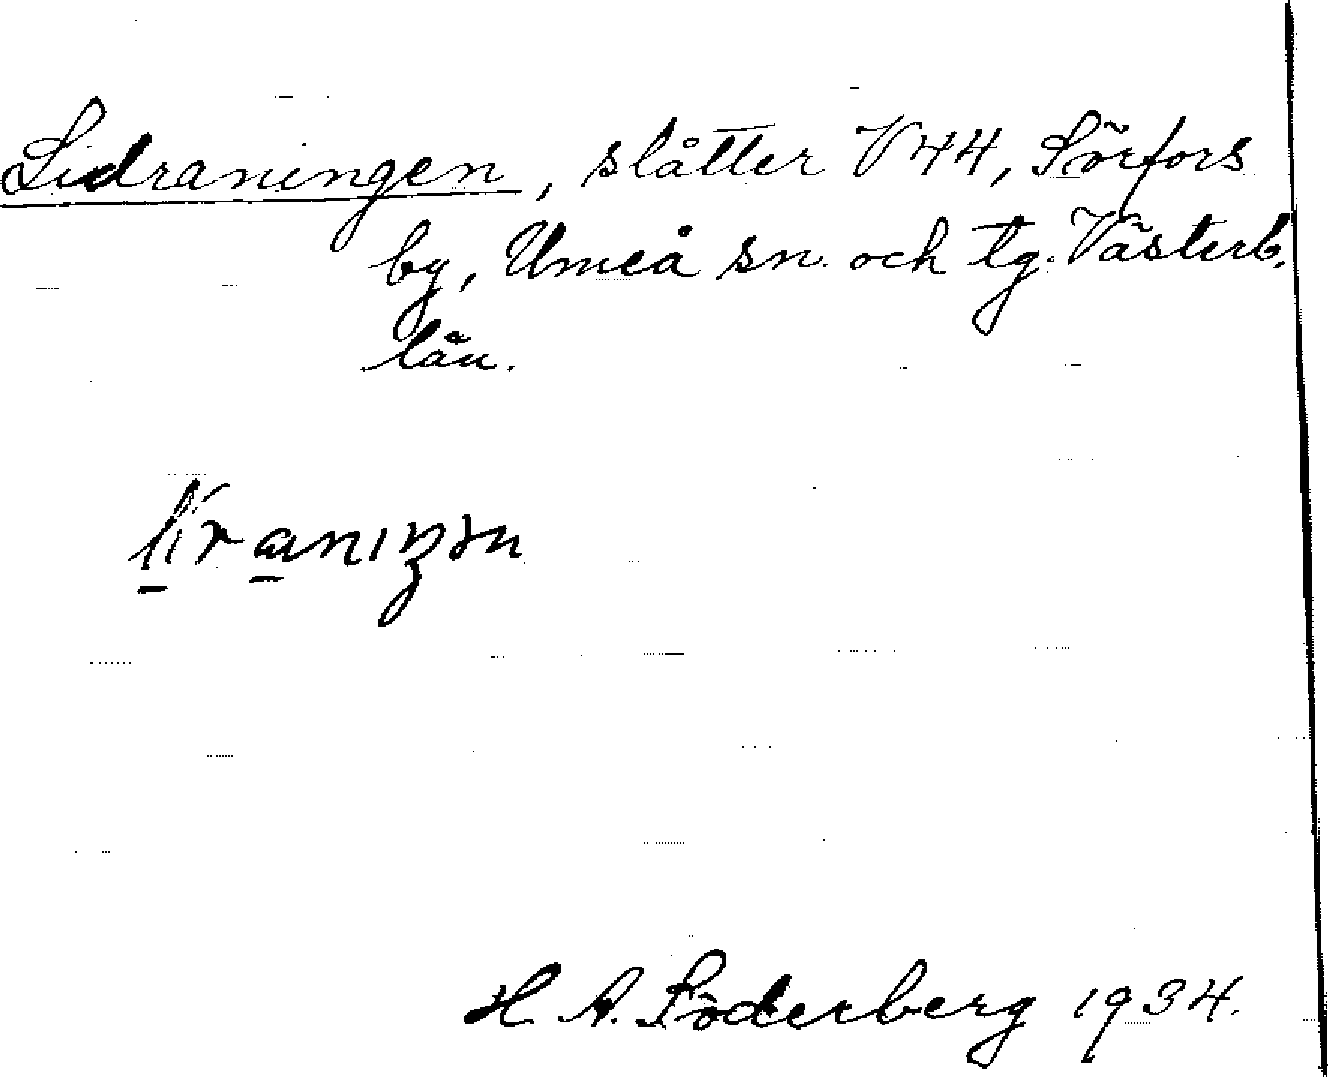 Lidraningen, slåtter V 44, Sörfors
by, Umeå sn. och tg. Västerb.
län.
H. A. Söderberg 1934.